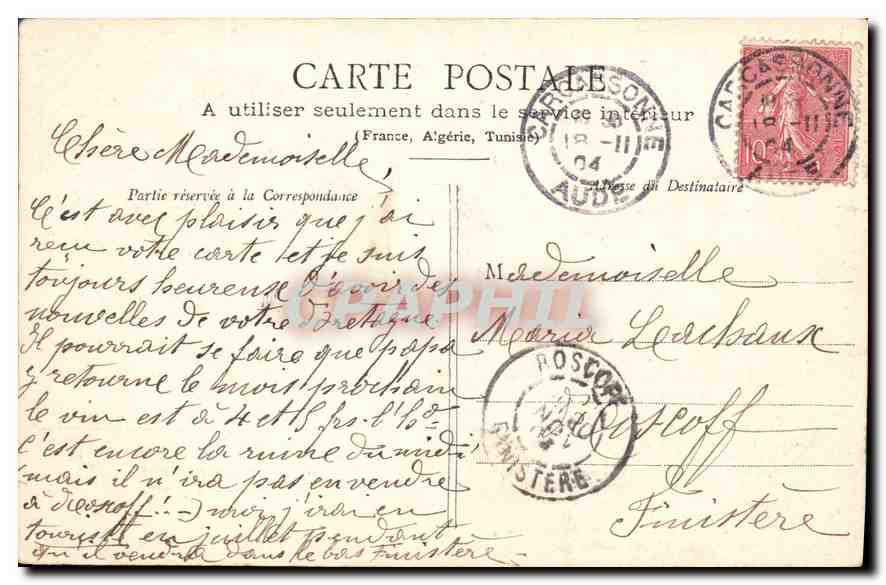 CARTE POSTALE
A utiliser seulement dans le service intérieur
(France, Algérie, Tunisie)
Chère Mademoiselle
Partie réservée à la Correspondance
Adresse du Destinataire
C'est avec plaisir que j'ai
reçu votre carte et je suis
toujours heureuse d'avoir des
nouvelles de votre Bretagne
Il pourrait se faire que papa
y retourne le mois prochain
le vin est à 4 et 5 frs. l'ho
c'est encore la ruine du midi
(mais il n'ira pas en vendre
à Roscoff !..) moi j'irai en
touriste en juillet pendant
qu'il vendra dans le bas Finistère
Mademoiselle
Maria Lachaux
Roscoff
Finistère
CARCASSONNE
18 -11
04
AUDE
CARCASSONNE
18 -11
04
10
ROSCOFF
FINISTÈRE
CPAPHIL